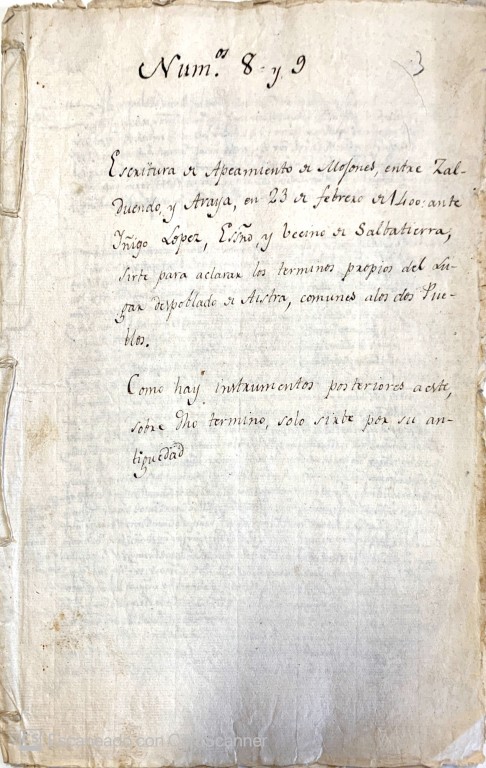 Num.os 8 y 9
3
Escritura de Apeamiento de Mojones, entre Zal-
duendo, y Araya, en 23 de febrero de 1400: ante
Iñigo Lopez, Essno, y vecino de Salbatierra,
sirte para aclarar los terminos propios del Lu-
gar despoblado de Aistra, comunes alos dos Pue-
blos.
Como hay instrumentos posteriores a este,
sobre dho termino, solo sirbe por su an-
tiguedad
Escaneado con CamScanner